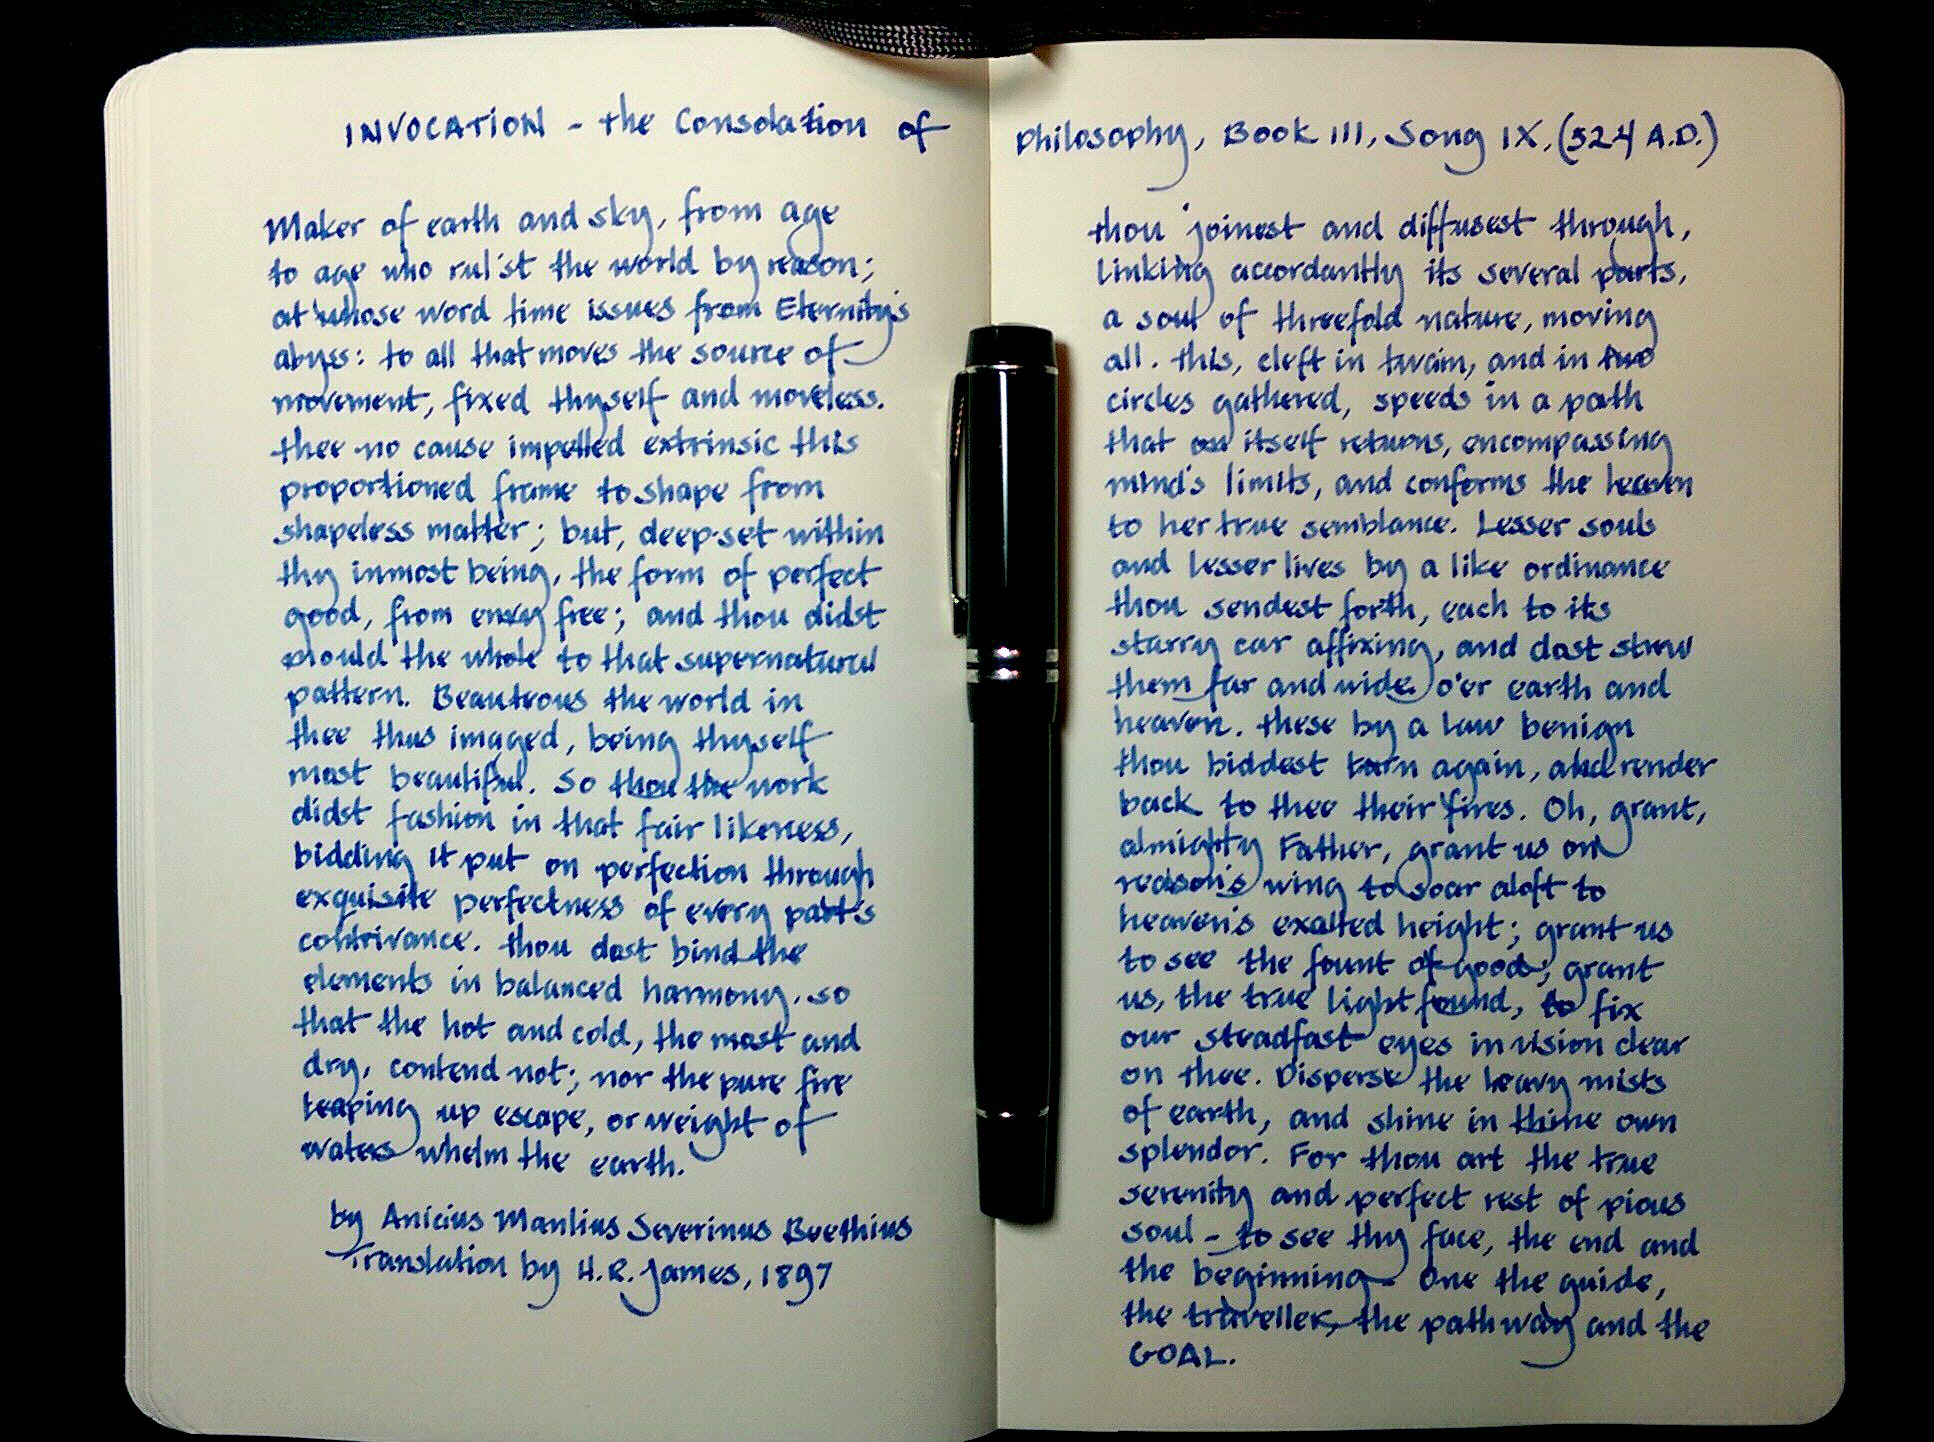 INVOCATION - the Consolation of
Maker of earth and sky, from age
to age who rul'st the world by reason;
at whose word time issues from Eternity's
abyss: to all that moves the source of
movement, fixed thyself and moveless.
thee no cause impelled extrinsic this
proportioned frame to shape from
shapeless matter; but, deep-set within
thy inmost being, the form of perfect
good, from envy free; and thou didst
mould the whole to that supernatural
pattern. Beauteous the world in
thee thus imaged, being thyself
most beautiful. So thou the work
didst fashion in that fair likeness,
bidding it put on perfection through
exquisite perfectness of every part's
contrivance. thou dost bind the
elements in balanced harmony. so
that the hot and cold, the most and
dry, contend not; nor the pure fire
leaping up escape, or weight of
waters whelm the earth.
by Anicius Manlius Severinus Boethius
Translation by H.R. James, 1897
Philosophy, Book III, Song IX, (524 A.D.)
thou joinest and diffusest through,
linking accordantly its several parts,
a soul of threefold nature, moving
all. this, cleft in twain, and in two
circles gathered, speeds in a path
that on itself returns, encompassing
mind's limits, and conforms the heaven
to her true semblance. Lesser souls
and lesser lives by a like ordinance
thou sendest forth, each to its
starry car affixing, and dost strew
them far and wide o'er earth and
heaven. these by a law benign
thou biddest turn again, and render
back to thee their fires. Oh, grant,
almighty Father, grant us on
reason's wing to soar aloft to
heaven's exalted height; grant us
to see the fount of good; grant
us, the true light found, to fix
our steadfast eyes in vision clear
on thee. Disperse the heavy mists
of earth, and shine in thine own
splendor. For thou art the true
serenity and perfect rest of pious
soul - to see thy face, the end and
the beginning - One the guide,
the traveller, the pathway and the
GOAL.